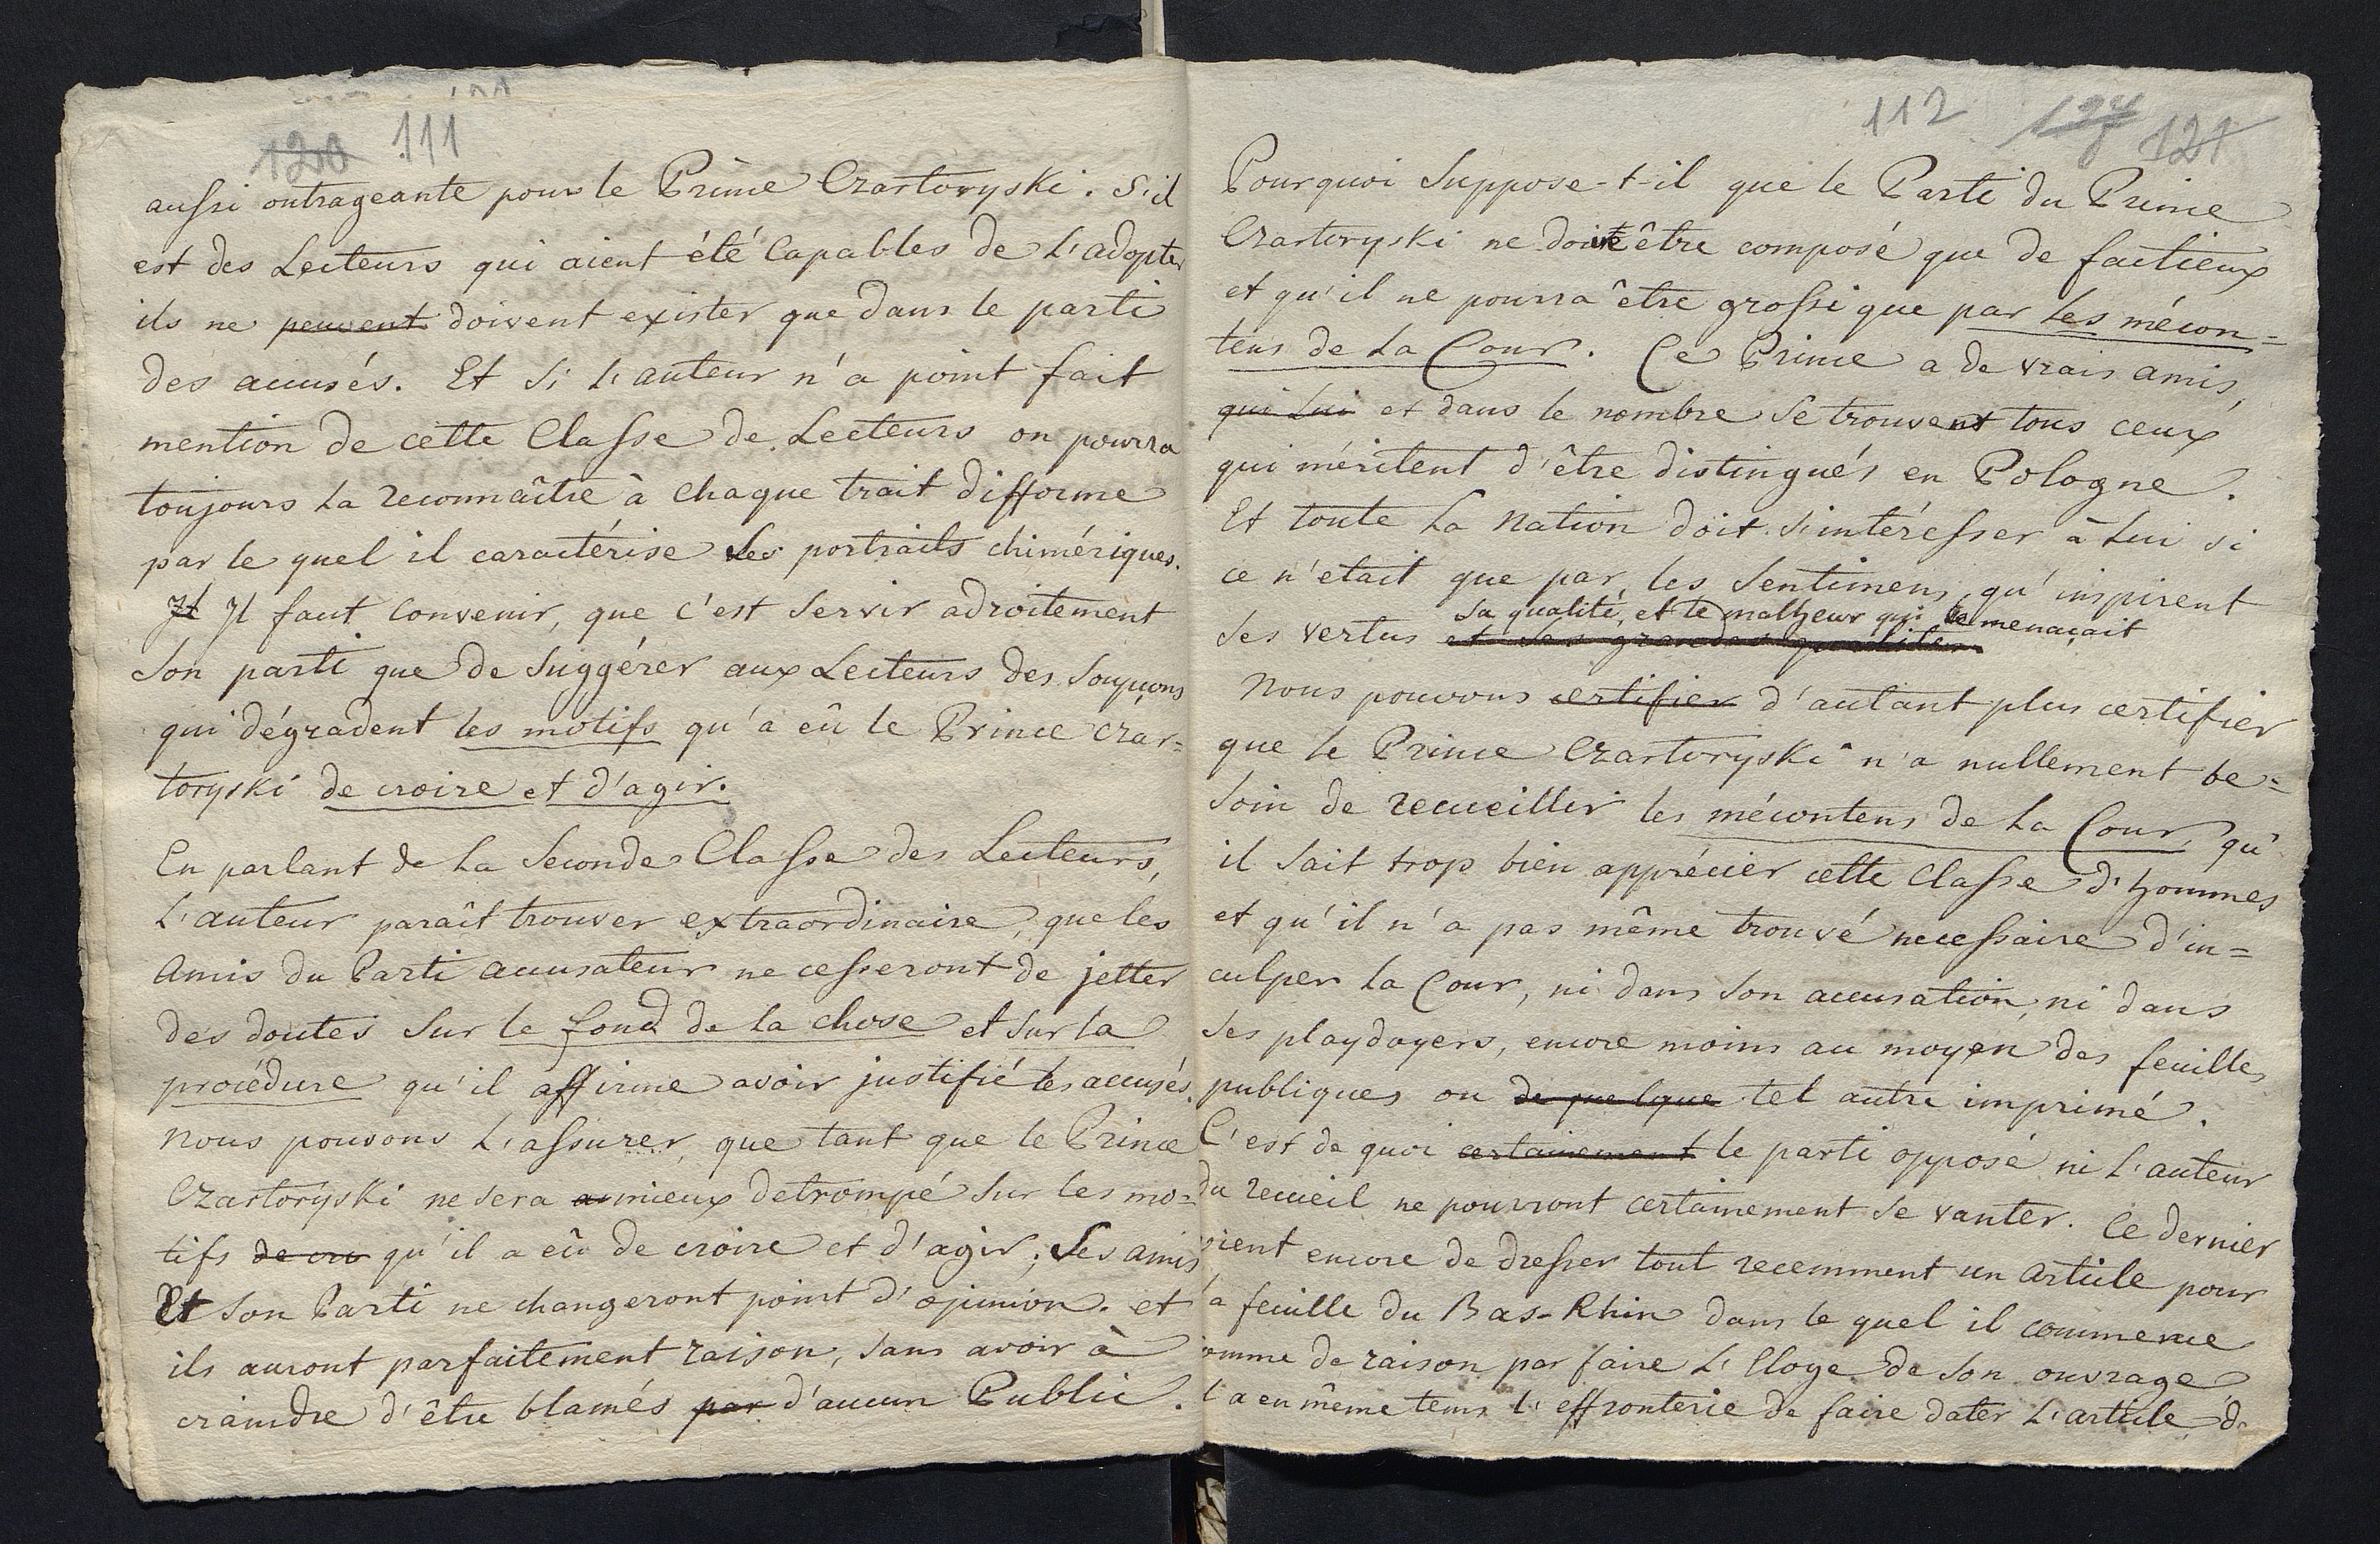 120 111
aussi outrageante pour le Prince Czartoryski. S'il
est des Lecteurs qui aient été Capables de L'adopter
ils ne peuvent doivent exister que dans le parti
des accusés. Et Si L'auteur n'a point fait
mention de cette Classe de Lecteurs on pourra
toujours La reconnaître à Chaque trait difforme
par le quel il caractérise Ses portraits chimériques.
Il Il faut Convenir, que c'est Servir adroitement
Son parti que de Suggérer aux Lecteurs des Soupçons
qui dégradent les motifs qu'a eû le Prince Czar=
toryski de croire et d'agir.
En parlant de La Seconde Classe des Lecteurs,
L'auteur paraît trouver extraordinaire, que les
Amis du Parti accusateur ne cesseront de jetter
des doutes Sur le fond de la chose et Sur la
procédure qu'il affirme avoir justifié les accusés.
Nous pouvons L'assurer, que tant que le Prince
Czartoryski ne sera mieux detrompé Sur les mo=
tifs de cro qu'il a eû de croire et d'agir; Ses amis
Et Son Parti ne changeront point d'opinion. et
ils auront parfaitement raison, Sans avoir à
craindre d'être blamés par d'aucun Public.
112 121
Pourquoi Suppose-t-il que le Parti du Prince
Czartoryski ne doive être composé que de factieux
et qu'il ne pourra être grossi que par Les mécon=
tens de La Cour. Ce Prince a de vrais amis,
qui Lui et dans le nombre Se trouvent tous ceux
qui méritent d'être distingués en Pologne.
Et toute La Nation doit S'intéresser à Lui si
ce n'etait que par les Sentimens, qu'inspirent
Sa qualité, et le malheur qui le menaçait
Ses vertus et ses grandes qualités.
Nous pouvons certifier d'autant plus certifier
que le Prince Czartoryski n'a nullement be=
soin de recueillir les mécontens de La Cour, qu'
il Sait trop bien apprécier cette Classe d'hommes
et qu'il n'a pas même trouvé necessaire d'in=
culper La Cour, ni dans Son accusation, ni dans
Ses playdoyers, encore moins au moyen des feuilles
publiques ou de quelque tel autre imprimé.
C'est de quoi certainement le parti opposé ni L'auteur
du recueil ne pourront certainement Se vanter. Ce dernier
vient encore de dresser tout recemment un article pour
la feuille du Bas-Rhin dans le quel il commence
comme de raison par faire L'Eloge de Son ouvrage
a en même tems L'effronterie de faire dater L'article d